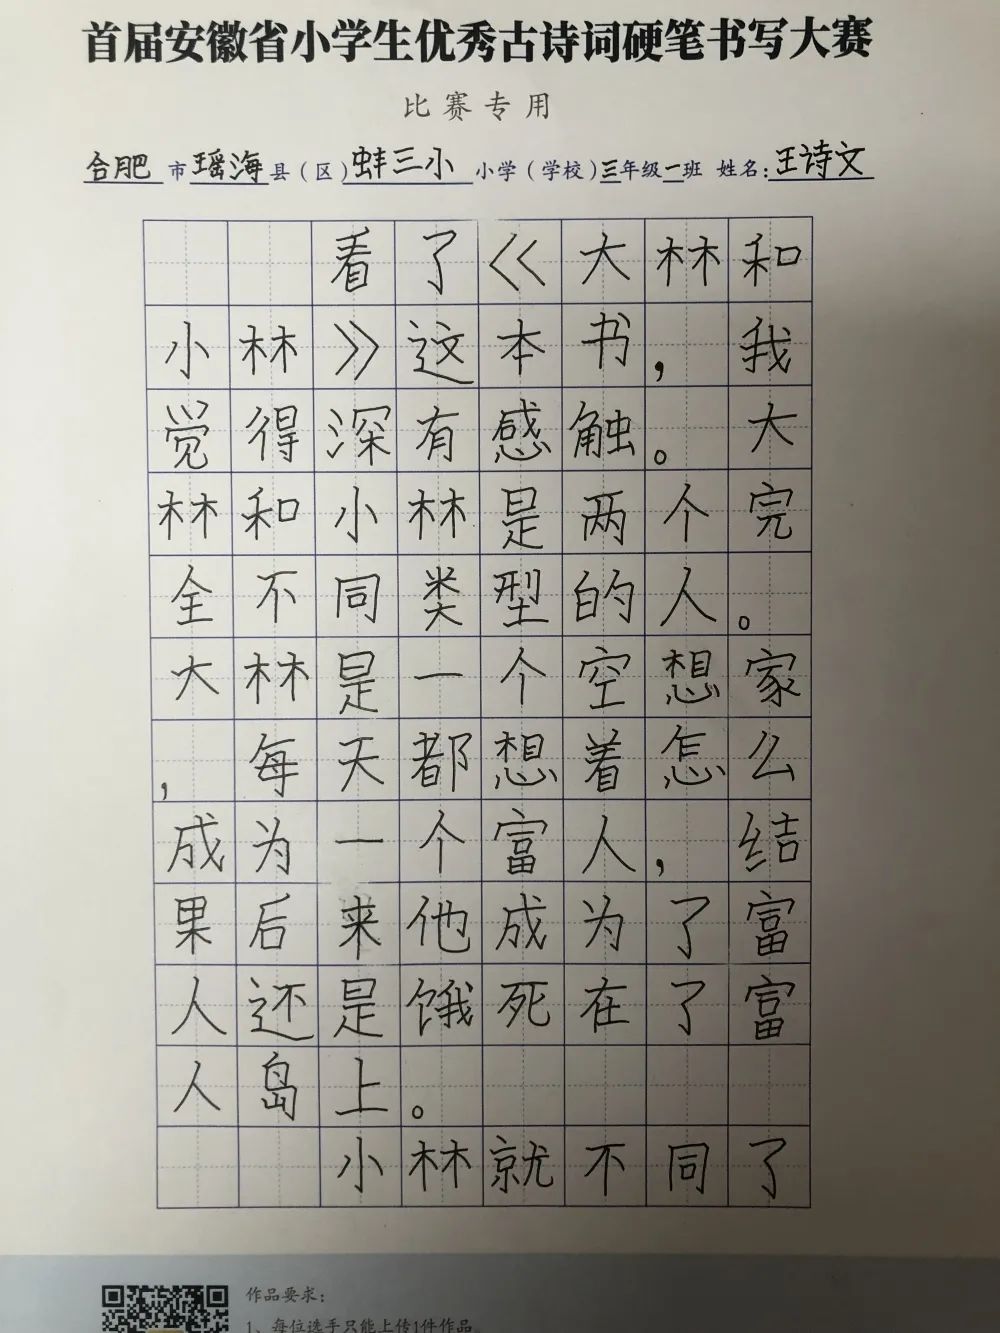 首届安徽省小学生优秀古诗词硬笔书写大赛
比赛专用
合肥市瑶海县（区）蚌三小小学（学校）三年级一班 姓名：王诗文
看了《大林和
小林》这本书，我
觉得深有感触。大
林和小林是两个完
全不同类型的人。
大林是一个空想家
，每天都想着怎么
成为一个富人，结
果后来他成为了富
人还是饿死在了富
人岛上。
小林就不同了
作品要求：
1、每位选手只能上传1件作品